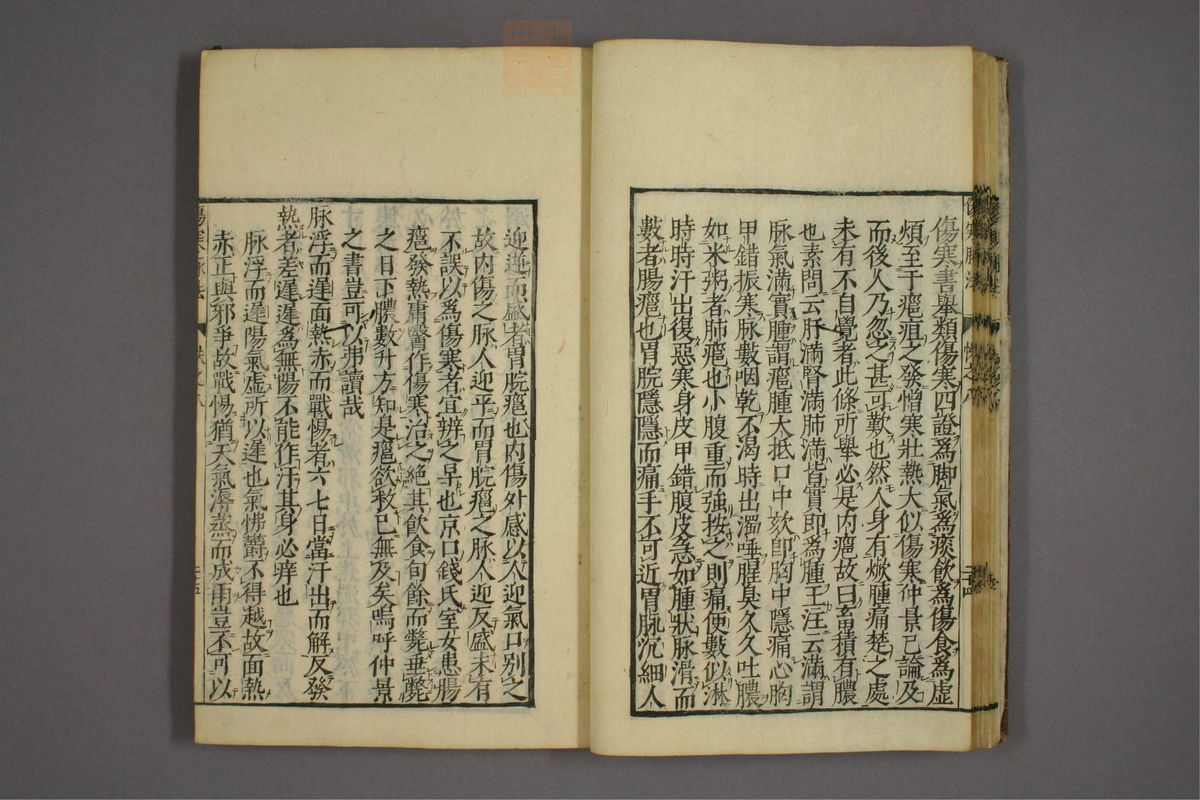 傷寒書舉類傷寒四證爲脚氣爲痰飲爲傷食爲虛
煩至于癰疽之發憎寒壯熱大似傷寒仲景已論及
而後人乃忽之甚可歎也然人身有焮腫痛楚之處
未有不自覺者此條所舉必是内癰故曰畜積有膿
也素問云肝滿腎滿肺滿皆實即爲腫王注云滿謂
脉氣滿實腫謂癰腫大抵口中欬即胸中隱痛心胸
甲錯振寒脉數咽乾不渴時出濁唾腥臭久久吐膿
如米粥者肺癰也小腹重而強按之則痛便數似淋
時時汗出復惡寒身皮甲錯腹皮急如腫狀脉滑而
數者腸癰也胃脘隱隱而痛手不可近胃脉沉細人
迎逆而盛者胃脘癰也内傷外感以人迎氣口別之
故内傷之脉人迎平而胃脘癰之脉人迎反盛未有
不誤以爲傷寒者宜辨之早也京口錢氏室女患腸
癰發熱庸醫作傷寒治之絕其飲食旬餘而斃垂斃
之日下膿數升方知是癰欲救已無及矣嗚呼仲景
之書豈可以弗讀哉
脉浮而遲面熱赤而戰惕者六七日當汗出而解反發
熱者差遲遲爲無陽不能作汗其身必痒也
脉浮而遲陽氣虛所以遲也氣怫欝不得越故面熱
赤正與邪爭故戰惕猶天氣溽蒸而成雨豈不可以